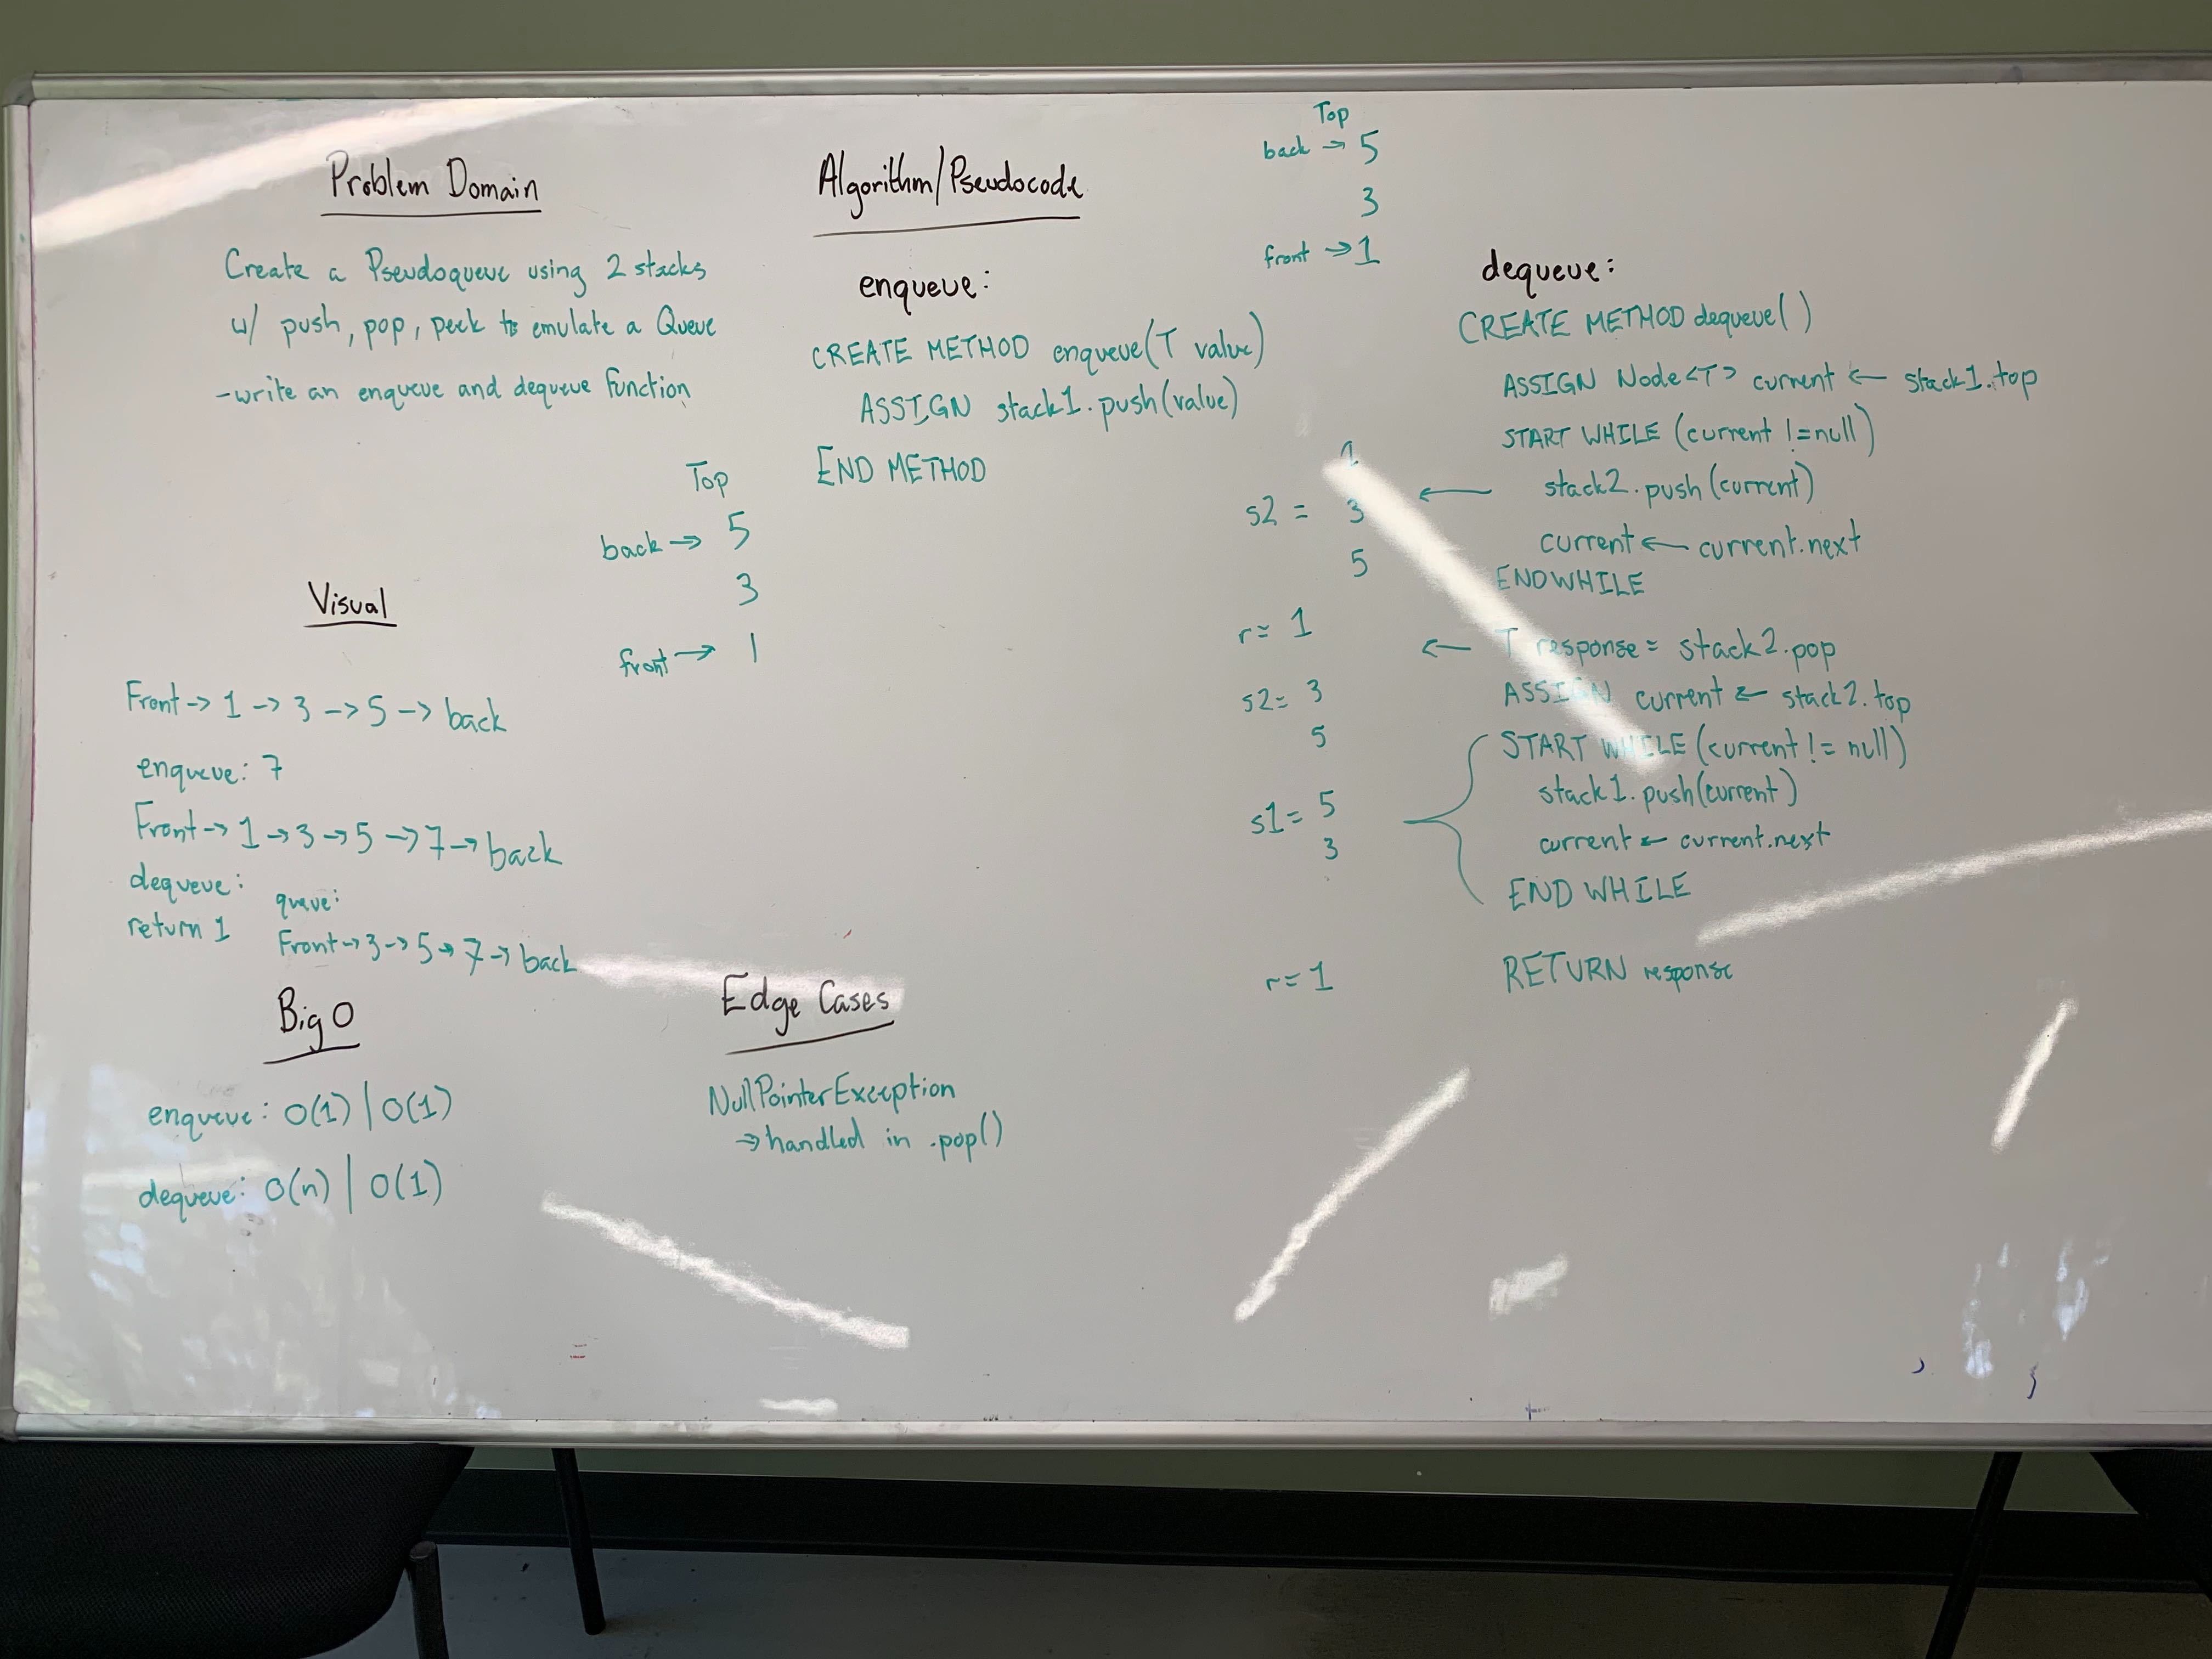 Problem Domain
Create a Pseudoqueue using 2 stacks
w/ push, pop, peek to emulate a Queue
-write an enqueue and dequeue function
Top
back → 5
3
front → 1
Visual
Front -> 1 -> 3 -> 5 -> back
enqueue: 7
Front -> 1 -> 3 -> 5 -> 7 -> back
dequeue:
return 1
queue:
Front -> 3 -> 5 -> 7 -> back
Big O
enqueue: O(1) | O(1)
dequeue: O(n) | O(1)
Edge Cases
NullPointerException
→ handled in .pop()
Algorithm/Pseudocode
enqueue:
CREATE METHOD enqueue(T value)
ASSIGN stack1.push(value)
END METHOD
Top
back → 5
3
front → 1
dequeue:
CREATE METHOD dequeue()
ASSIGN Node<T> current ← stack1.top
START WHILE (current !=null)
stack2.push(current)
current ← current.next
ENDWHILE
T response = stack2.pop
ASSIGN current ← stack2.top
START WHILE (current != null)
stack1.push(current)
current ← current.next
END WHILE
RETURN response
1
s2 = 3 ←
5
r = 1 ←
s2= 3
5
s1= 5
3
r= 1